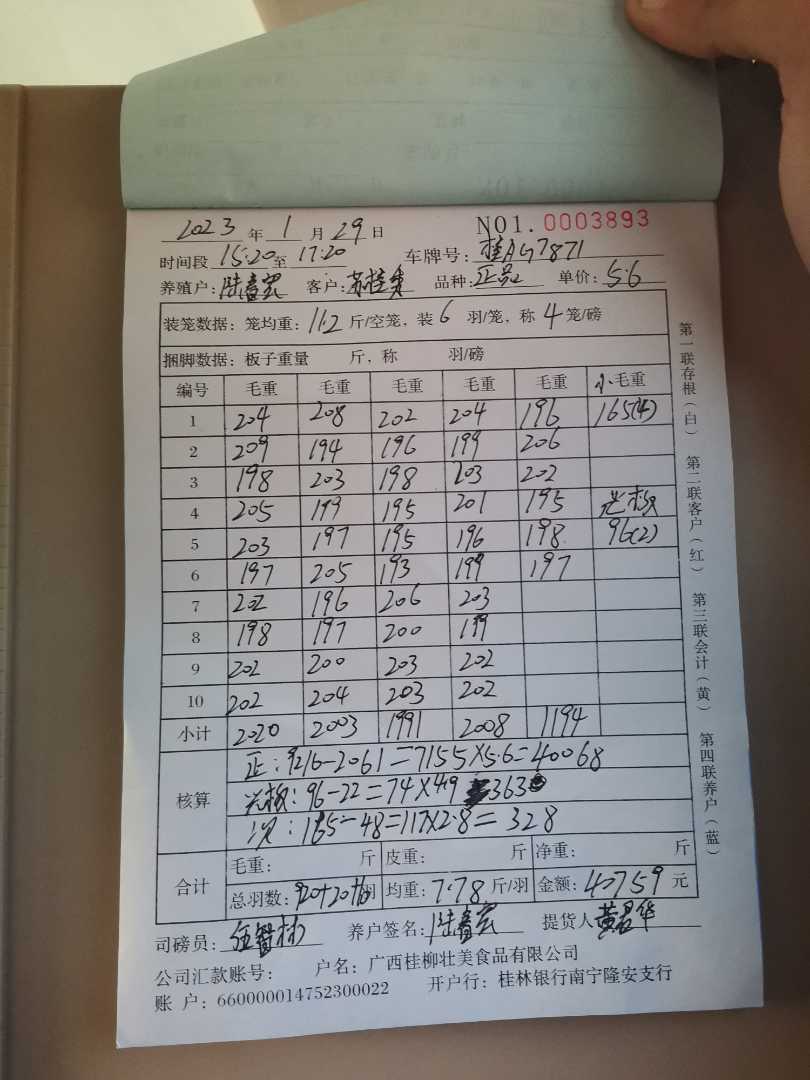 2023 年 1 月 29 日 NO1. 0003893
时间段 15:20 至 17:20 车牌号: 桂AG7871
养殖户: 陆春宏 客户: 苏桂勇 品种: 正品 单价: 5.6
装笼数据: 笼均重: 11.2 斤/空笼, 装 6 羽/笼, 称 4 笼/磅
捆脚数据: 板子重量 斤, 称 羽/磅
编号 毛重 毛重 毛重 毛重 毛重 小毛重
1 204 208 202 204 196 165(4)
2 209 194 196 199 206
3 198 203 198 203 202
4 205 199 195 201 195 光板
5 203 197 195 196 198 96(2)
6 197 205 193 199 197
7 202 196 206 203
8 198 197 200 199
9 202 200 203 202
10 202 204 203 202
小计 2020 2003 1991 2008 1194
核算
正: 9216-2061=7155×5.6=40068
光板: 96-22=74×4.9 363
次: 165-48=117×2.8=328
合计
毛重: 斤 皮重: 斤 净重: 斤
总羽数: 920+20+ 羽 均重: 7.78 斤/羽 金额: 40759 元
司磅员: 养户签名: 陆春宏 提货人 黄君华
公司汇款账号: 户名: 广西桂柳壮美食品有限公司
账 户: 660000014752300022 开户行: 桂林银行南宁隆安支行
第一联存根(白) 第二联客户(红) 第三联会计(黄) 第四联养户(蓝)